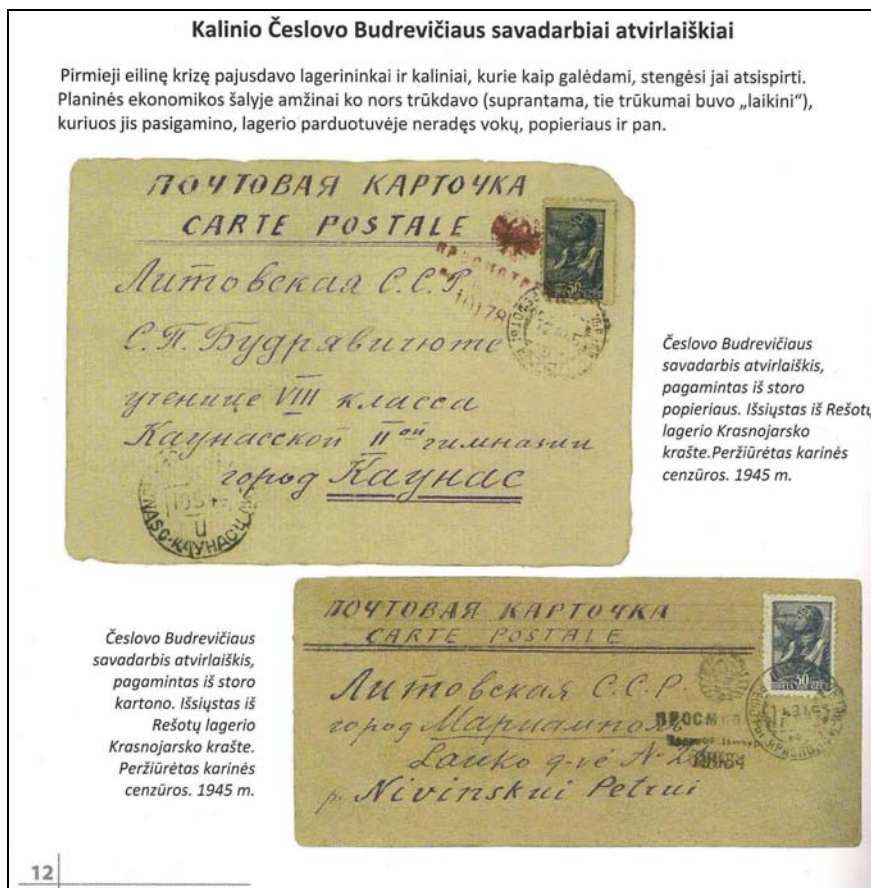 Kalinio Česlovo Budrevičiaus savadarbiai atvirlaiškiai
Pirmieji eilinę krizę pajusdavo lagerininkai ir kaliniai, kurie kaip galėdami, stengėsi jai atsispirti.
Planinės ekonomikos šalyje amžinai ko nors trūkdavo (suprantama, tie trūkumai buvo „laikini“),
kuriuos jis pasigamino, lagerio parduotuvėje neradęs vokų, popieriaus ir pan.
ПОЧТОВАЯ КАРТОЧКА
CARTE POSTALE
Литовская С.С.Р.
С.П. Будрявичюте
ученице VIII класса
Каунасской II ой гимназии
город Каунас
10178
КАУНАС
Česlovo Budrevičiaus
savadarbis atvirlaiškis,
pagamintas iš storo
popieriaus. Išsiųstas iš Rešotų
lagerio Krasnojarsko
krašte.Peržiūrėtas karinės
cenzūros. 1945 m.
Česlovo Budrevičiaus
savadarbis atvirlaiškis,
pagamintas iš storo
kartono. Išsiųstas iš
Rešotų lagerio
Krasnojarsko krašte.
Peržiūrėtas karinės
cenzūros. 1945 m.
ПОЧТОВАЯ КАРТОЧКА
CARTE POSTALE
Литовская С.С.Р.
город Мариамполь
Lauko g-vė №
p. Nivinskui Petrui
50
12